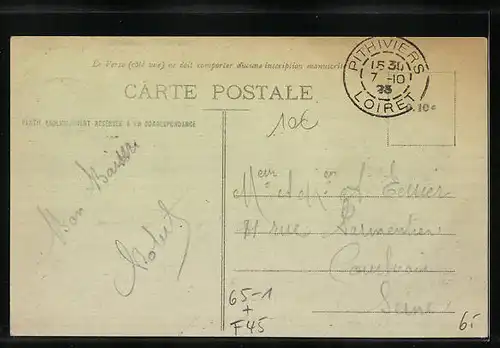 Le Verso (côté vue) ne doit comporter aucune inscription manuscrite
PITHIVIERS
15 30
7 -10
LOIRET
CARTE POSTALE
0.10c
10€
PARTIE EXCLUSIVEMENT RÉSERVÉE A LA CORRESPONDANCE
Bon Baiser
Robert
Meur et Men
rue Parmentier
Courbevoie
Seine
65-1
+
F45
6.-